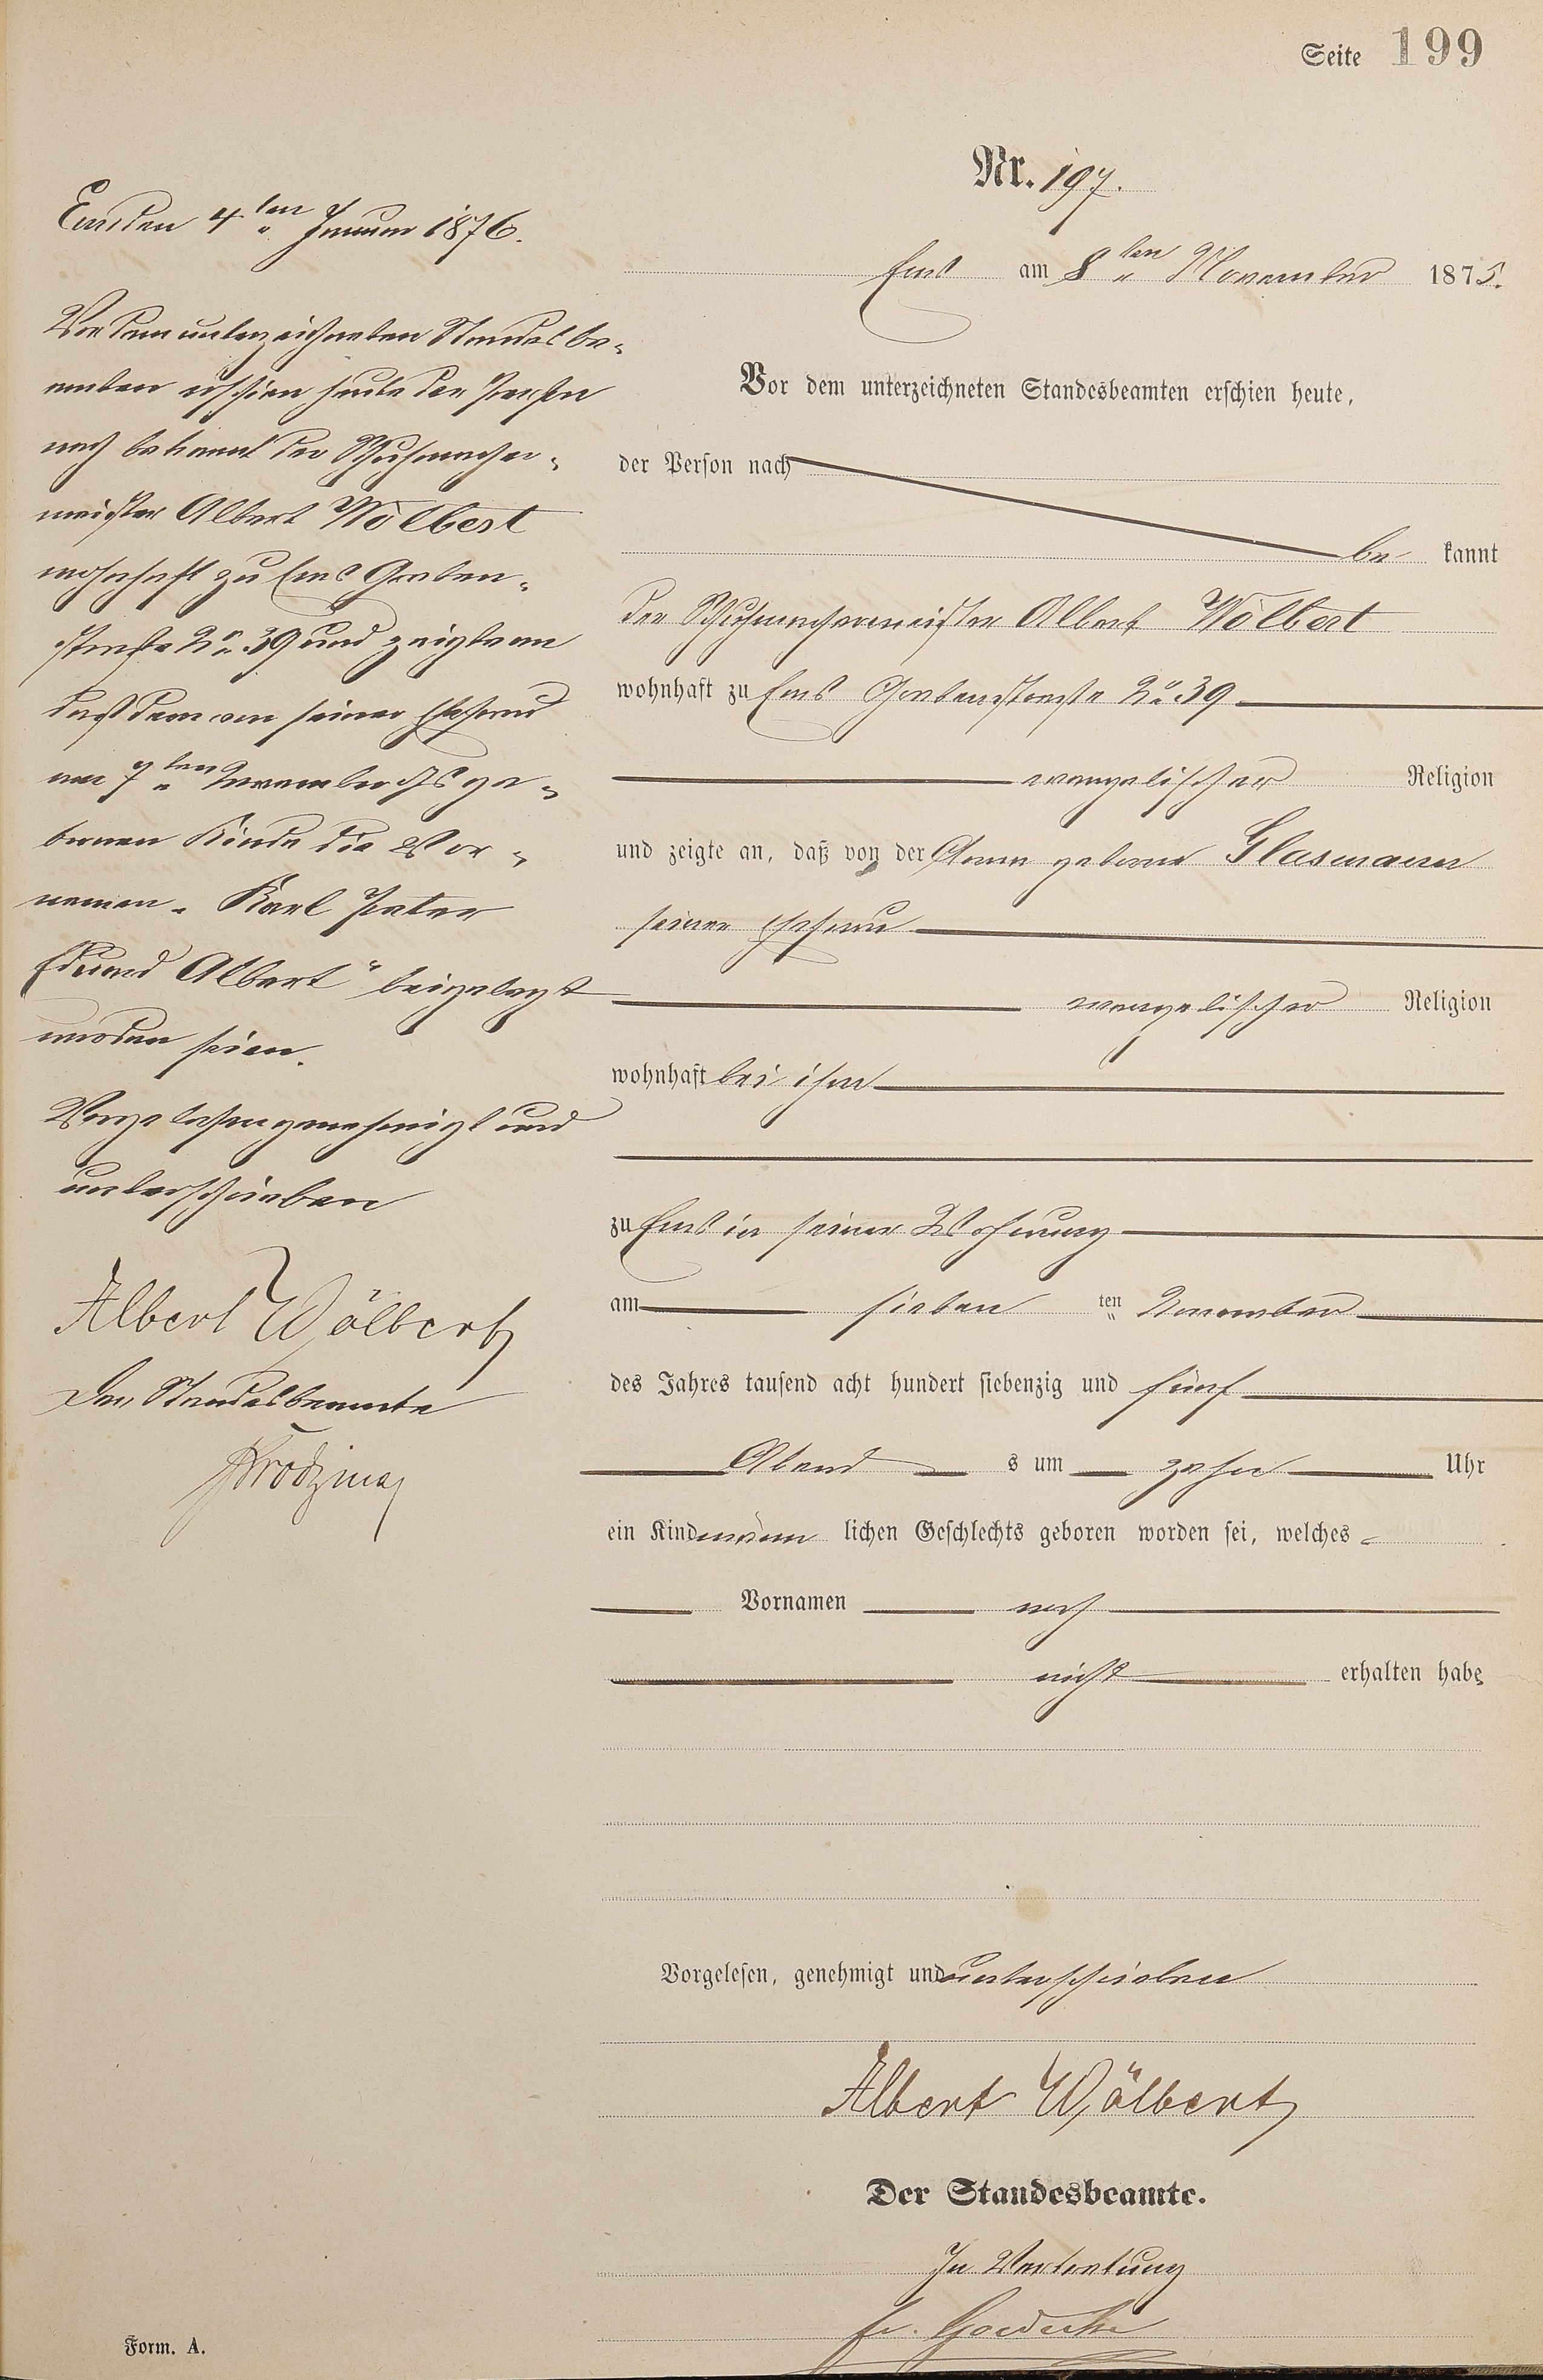 Seite 199
Nr. 197.
Ems am 8ten November 1875.
Vor dem unterzeichneten Standesbeamten erschien heute,
der Person nach
be kannt
der Schuhmachermeister Albert Wölbert
wohnhaft zu Ems Grabenstraße No 39
evangelischer Religion
und zeigte an, daß von der Anna geborne Glasmann
seiner Ehefrau
evangelischer Religion
wohnhaft bei ihm
zu Ems in seiner Wohnung
am sieben ten November
des Jahres tausend acht hundert siebenzig und fünf
Abend s um zehn Uhr
ein Kind männ lichen Geschlechts geboren worden sei, welches
Vornamen noch
nicht erhalten habe
Vorgelesen, genehmigt und unterschrieben
Albert Wölbert
Der Standesbeamte.
In Vertretung
Fr. Goedecke
4ten Januar 1876.
Vor dem unterzeichneten Standesbe-
amten erschien heute der Person
nach bekannt der Schuhmacher-
meister Albert Wölbert
wohnhaft zu Ems Graben-
straße No 39 und zeigte an
daß dem von seiner Ehefrau
am 7ten November Js ge-
bornen Kinde die Vor-
namen „Karl Peter
Eduard Albert" beigelegt
worden seien.
Vorgelesen genehmigt und
unterschrieben
Albert Wölbert
Der Standesbeamte
Form. A.